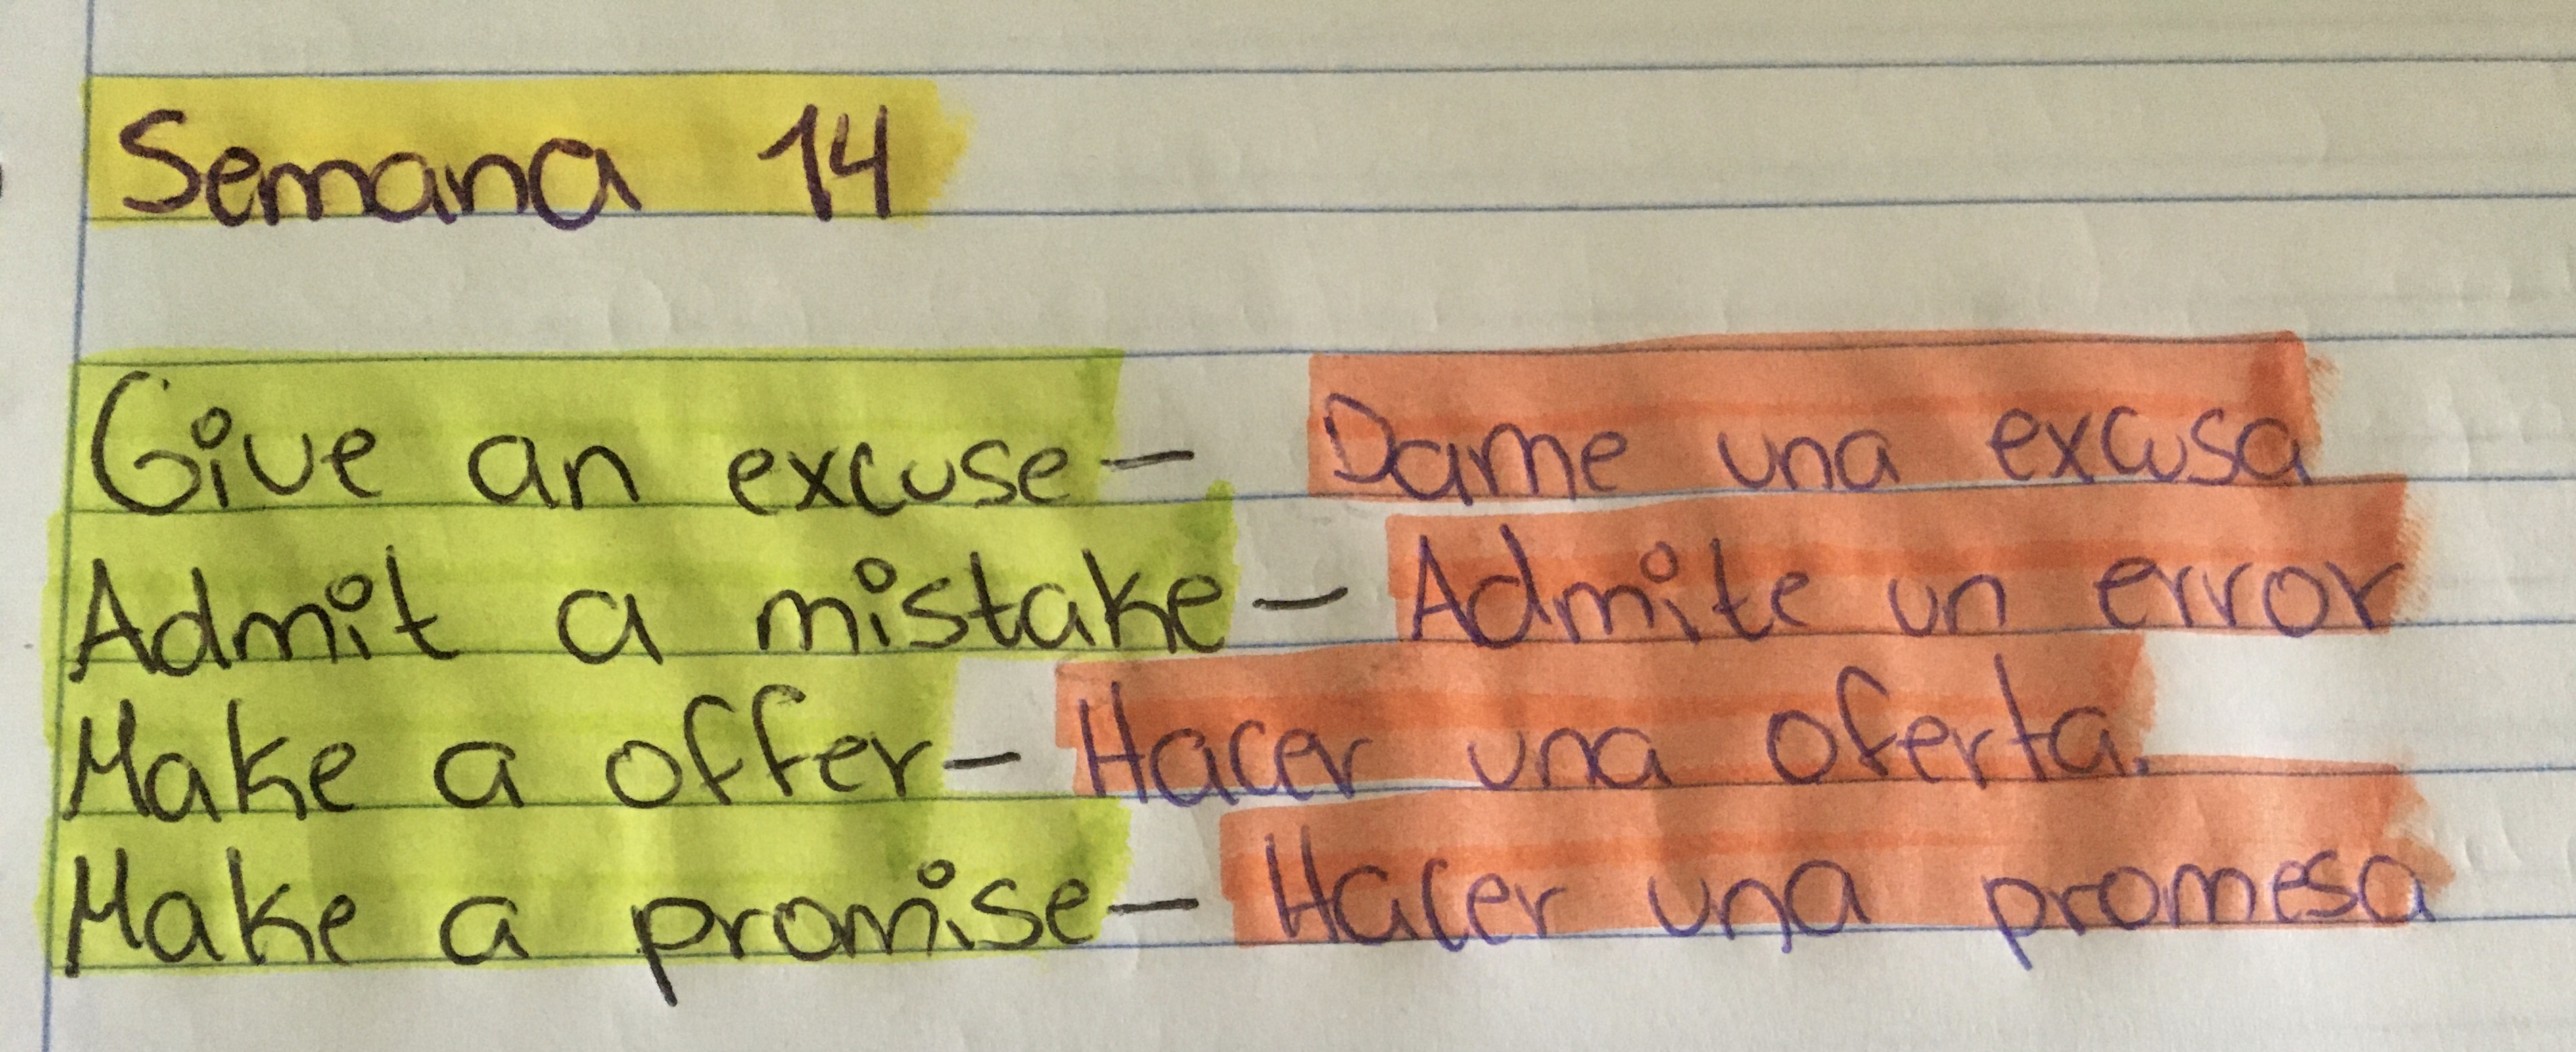 Semana 14
Give an excuse - Dame una excusa
Admit a mistake - Admite un error
Make a offer - Hacer una oferta.
Make a promise - Hacer una promesa